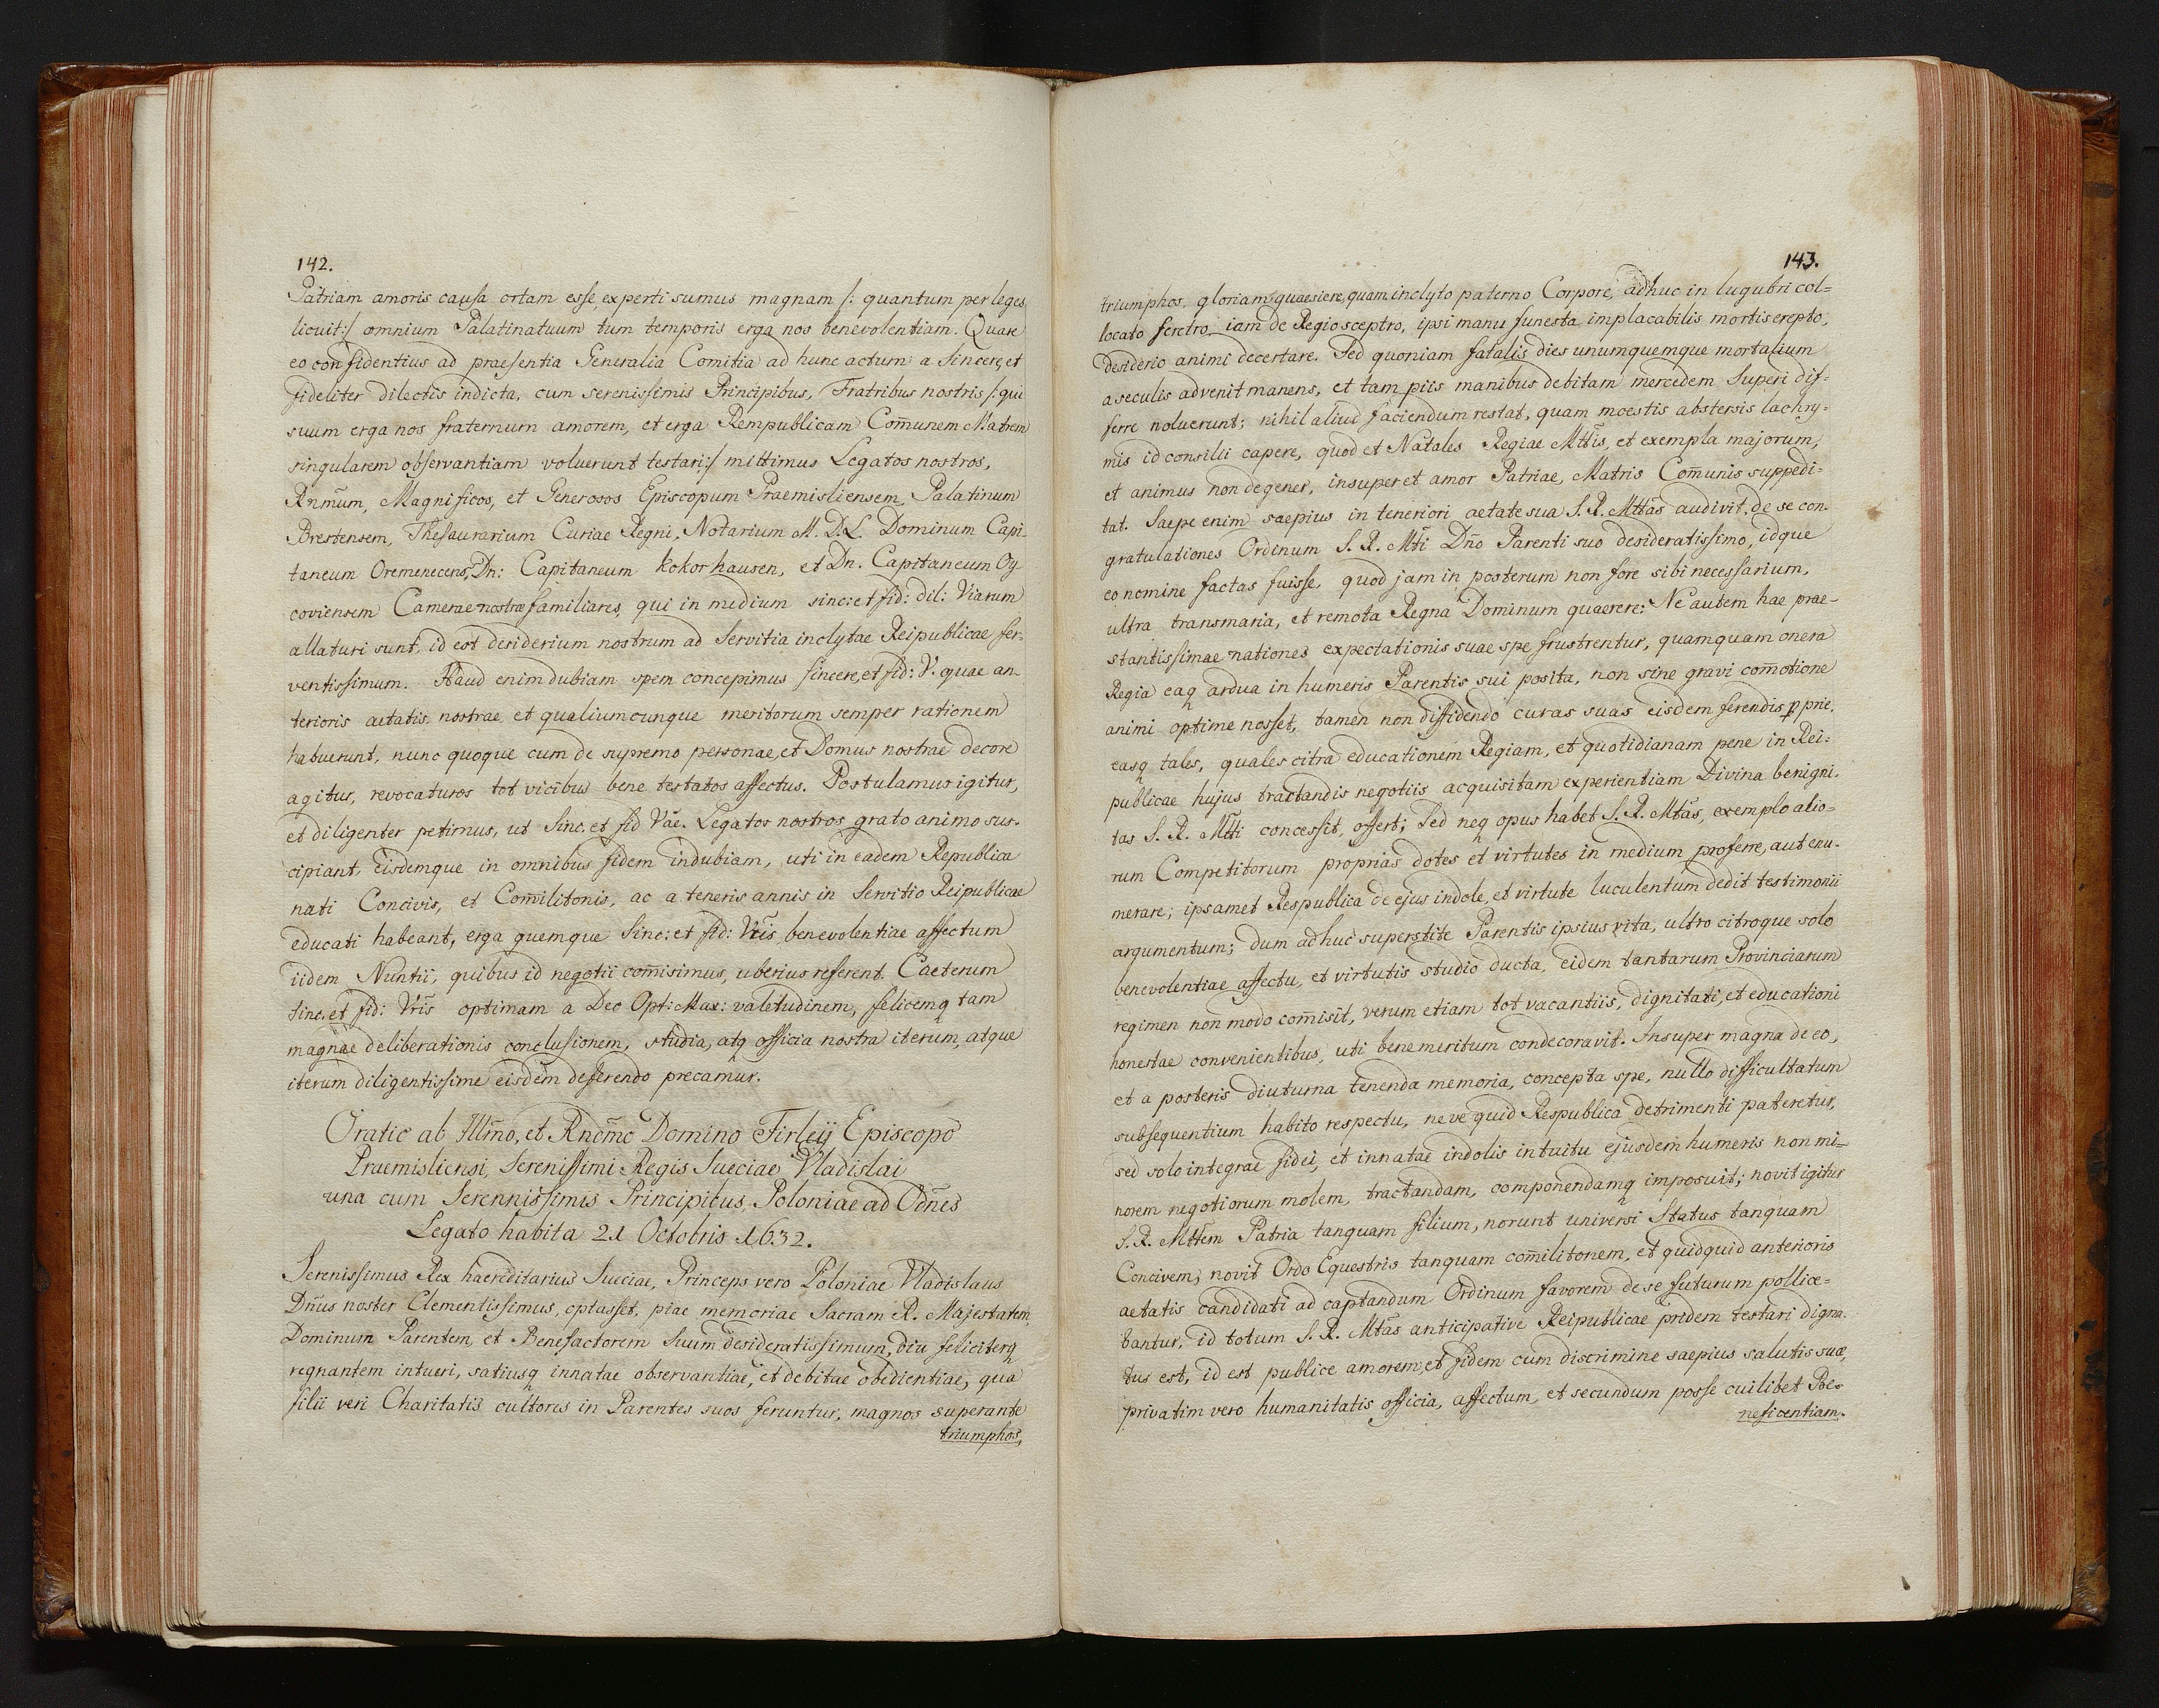 142.
Patriam amoris causa ortam esse, experti sumus magnam /: quantum per leges
licuit :/ omnium Palatinatuum tum temporis erga nos benevolentiam. Quare
eo confidentius ad praesentia Generalia Comitia ad hunc actum a Sincere, et
fideliter dilectis indicta, cum serenissimis Principibus, Fratribus nostris /: qui
suum erga nos fraternum amorem, et erga Rempublicam Com̄unem Matrem
singularem observantiam voluerunt testari :/ mittimus Legatos nostros,
Rnm̄um, Magnificos, et Generosos Episcopum Praemisliensem, Palatinum
Brestensem, Thesaurarium Curiae Regni, Notarium M. D. L. Dominum Capi-
taneum Oremenecens, Dn: Capitaneum Kokorhausen, et Dn. Capitaneum Oy
coviensem Camerae nostrae familiares, qui in medium sinc: et fid: dil: Viarum
allaturi sunt, id est desiderium nostrum ad Servitia inclytae Reipublicae fer-
ventissimum. Haud enim dubiam spem concepimus sincere, et fid: V. quae an-
terioris aetatis nostrae et qualiumcunque meritorum semper rationem
habuerunt, nunc quoque cum de supremo personae, et Domus nostrae decore
agitur, revocaturos tot vicibus bene testatos affectus. Postulamus igitur,
et diligenter petimus, ut Sinc. et fid Vāe. Legatos nostros grato animo sus-
cipiant, eisdemque in omnibus fidem indubiam, uti in eadem Republica
nati Concivis, et Com̄ilitonis, ac a teneris annis in Servitio Reipublicae
educati habeant, erga quemque Sinc: et fid: Vr̄is benevolentiae affectum
iidem Nuntii, quibus id negotii com̄isimus, uberius referent. Caeterum
sinc. et fid: Vr̄is optimam a Deo Opt: Max: valetudinem, felicemq tam
magnae deliberationis conclusionem, studia, atq officia nostra iterum, atque
iterum diligentissime eisdem deferendo precamur.
Oratio ab Illm̄o, et Rndm̄o Domino Firleij Episcopo
Praemisliensi, Serenissimi Regis Sueciae Vladislai
una cum Serennissimis Principibus, Poloniae ad Od̄nes
Legato habita 21 Octobris 1632.
Serenissimus Rex haereditarius Sueciae, Princeps vero Poloniae Vladislaus
Dn̄us noster Clementissimus, optasset, piae memoriae Sacram R. Majestatem,
Dominum Parentem, et Benefactorem Suum desideratissimum, diu feliciterq
regnantem intueri, satiusq innatae observantiae, et debitae obedientiae, qua
filii veri Charitatis cultores in Parentes suos feruntur, magnos superante
triumphos,
143.
triumphos, gloriam quaesiere, quam inclyto paterno Corpore, adhuc in lugubri col=
locato feretro, iam de Regio sceptro, ipsi manu funesta implacabilis mortis erepto,
desiderio animi decertare. Sed quoniam fatalis dies unumquemque mortalium
a seculis advenit manens, et tam piis manibus debitam mercedem Superi dif=
ferre noluerunt; nihil aliud faciendum restat, quam moestis abstersis lachry=
mis id consilii capere, quod et Natales Regiae Mtt̄is, et exempla majorum,
et animus non degener, insuper et amor Patriae, Matris Com̄unis suppedi=
tat. Saepe enim saepius in teneriori aetate sua S. R. Mtt̄as audivit, de se con-
gratulationes Ordinum S. R. Mt̄i Dn̄o Parenti suo desideratissimo, idque
eo nomine factas fuisse, quod jam in posterum non fore sibi necessarium,
ultra transmaria, et remota Regna Dominum quaerere: Ne autem hae prae-
stantissimae nationes expectationis suae spe frustrentur, quamquam onera
Regia eaq ardua in humeris Parentis sui posita, non sine gravi com̄otione
animi optime nosset, tamen non diffidendo curas suas eisdem ferendis pprie,
easq tales, quales citra educationem Regiam, et quotidianam pene in Rei=
publicae hujus tractandis negotiis acquisitam experientiam Divina benigni-
tas S. R. Mtt̄i concessit, offert; Sed neq opus habet S. R. Mtās, exemplo alio=
rum Competitorum proprias dotes et virtutes in medium proferre, aut enu-
merare; ipsamet Respublica de ejus indole, et virtute luculentum dedit testimonii
argumentum; dum adhuc superstite Parentis ipsius vita, ultro citroque solo
benevolentiae affectu, et virtutis studio ducta, eidem tantarum Provinciarum
regimen non modo com̄isit, verum etiam tot vacantiis, dignitati, et educationi
honestae convenientibus, uti bene meritum condecoravit. Insuper magna de eo,
et a posteris diuturna tenenda memoria, concepta spe, nullo difficultatum
subsequentium habito respectu, neve quid Respublica detrimenti pateretur,
sed solo integrae fidei, et innatae indolis intuitu ejusdem humeris non mi=
norem negotiorum molem, tractandam, componendamq imposuit; novit igitur
S. R. Mtt̄em Patria tanquam filium, norunt universi Status tanquam
Concivem, novit Ordo Equestris tanquam com̄ilitonem, et quidquid anterioris
aetatis candidati ad captandum Ordinum favorem de se futurum pollice=
bantur, id totum S. R. Mtās anticipative Reipublicae pridem testari digna-
tus est, id est publice amorem, et fidem cum discrimine saepius salutis suae,
privatim vero humanitatis officia, affectum, et secundum posse cuilibet Be-
neficentiam.